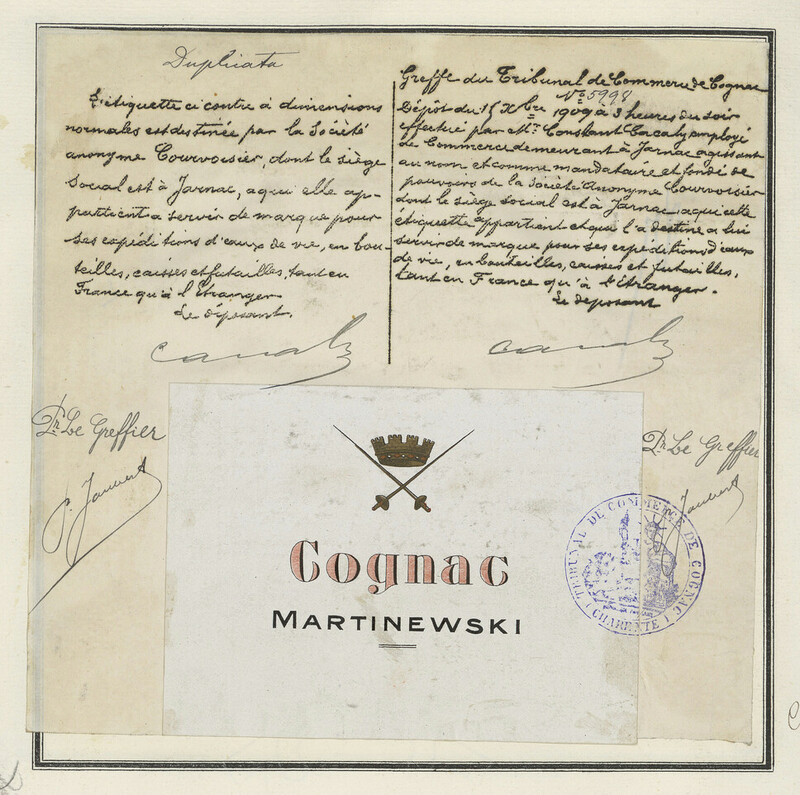 Duplicata
L'étiquette ci contre à dimensions
normales est destinée par la Société
anonyme Courvoisier, dont le siège
social est à Jarnac, a qui elle ap-
partient a servir de marque pour
ses expéditions d'eaux de vie, en bou-
teilles, caisses et futailles, tant en
France qu'à l'Etranger.
Le déposant.
Greffe du Tribunal de Commerce de Cognac
No 5998
Dépôt du 15 Xbre 1909 à 3 heures du soir
effectué par Mr. Constant Cacaly employé
de Commerce demeurant à Jarnac agissant
au nom et comme mandataire et fondé de
pouvoirs de la Société Anonyme Courvoisier
dont le siège social est à Jarnac, a qui cette
etiquette appartient et qui l'a destine a lui
servir de marque pour ses expéditions d'eaux
de vie, en bouteilles, caisses et futailles,
tant en France qu'à l'étranger.
Le déposant
Pr Le Greffier
P. Jaubert
Pr Le Greffier
Jaubert
Cognac
MARTINEWSKI
TRIBUNAL DE COMMERCE DE COGNAC
CHARENTE